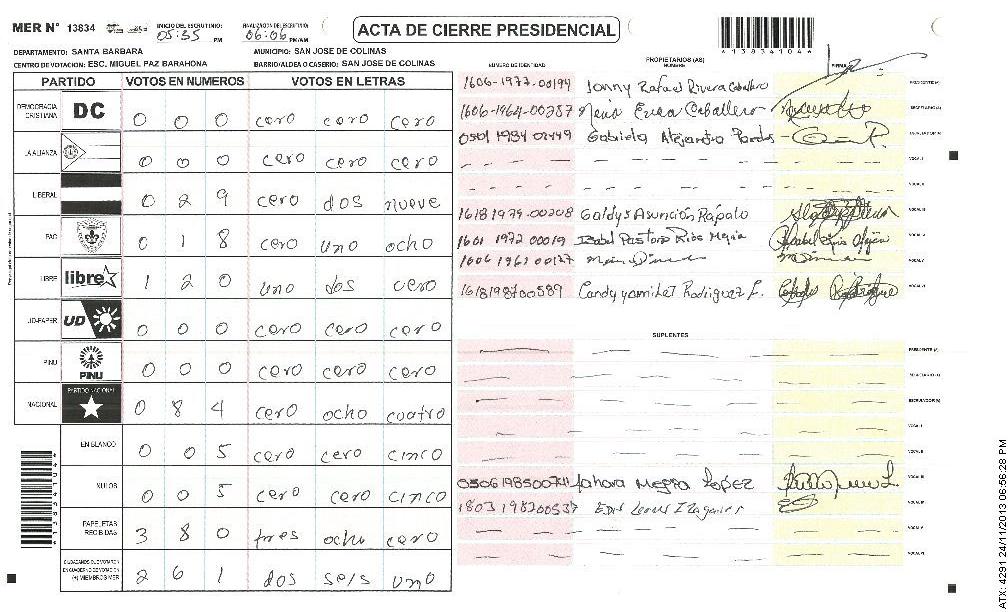 MER N° 13834 INICIO DEL ESCRUTINIO: 05:35 PM FINALIZACION DEL ESCRUTINIO: 06:06 PM/AM
ACTA DE CIERRE PRESIDENCIAL
DEPARTAMENTO: SANTA BARBARA MUNICIPIO: SAN JOSE DE COLINAS
CENTRO DE VOTACION: ESC. MIGUEL PAZ BARAHONA BARRIO/ALDEA O CASERIO: SAN JOSE DE COLINAS
PARTIDO VOTOS EN NUMEROS VOTOS EN LETRAS
DEMOCRACIA CRISTIANA DC 0 0 0 cero cero cero
LA ALIANZA 0 0 0 cero cero cero
LIBERAL 0 2 9 cero dos nueve
PAC 0 1 8 cero uno ocho
LIBRE libre 1 2 0 uno dos cero
UD-FAPER UD 0 0 0 cero cero cero
PINU PINU 0 0 0 cero cero cero
NACIONAL PARTIDO NACIONAL 0 8 4 cero ocho cuatro
EN BLANCO 0 0 5 cero cero cinco
NULOS 0 0 5 cero cero cinco
PAPELETAS RECIBIDAS 3 8 0 tres ocho cero
CIUDADANOS QUE VOTARON EN CUADERNO DE VOTACION (+) MIEMBROS MER 2 6 1 dos seis uno
PROPIETARIOS (AS)
NUMERO DE IDENTIDAD NOMBRE FIRMA
1606-1977-00194 Jonny Rafael Rivera Caballero PRESIDENTE (A)
1606-1964-00287 Caballero SECRETARIO (A)
0501 1984 02449 Gabriela Alejandra
VOCAL I
VOCAL II
1618 1979-00208 Galdys Asunción Rápalo VOCAL III
1601 1972 00019 Isabel Pastora Rios Mejia VOCAL IV
VOCAL V
1618198700589 Candy yamilet Rodriguez F. VOCAL VI
SUPLENTES
PRESIDENTE (A)
SECRETARIO (A)
ESCRUTADOR (A)
VOCAL I
VOCAL II
Mejia Lopez VOCAL III
1803 198200537 VOCAL IV
VOCAL V
VOCAL VI
ATX: 4291 24/11/2013 06:56:28 PM